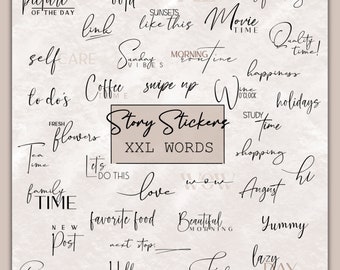 picture
OF THE DAY
SUNSETS
like this
Movie
TIME
link
Quality
time!
self
CARE
Sunday
VIBES
MORNING
routine
happiness
to do's
Coffee
TIME
swipe up
Wine
O'CLOCK
holidays
Story Stickers
XXL WORDS
FRESH
flowers
STUDY
time
Tea
Time
Let's
DO THIS
shopping
hi
family
TIME
love
WOW
wow
August
NEW
Post
favorite food
Beautiful
MORNING
Yummy
next stop:
lazy
DAY